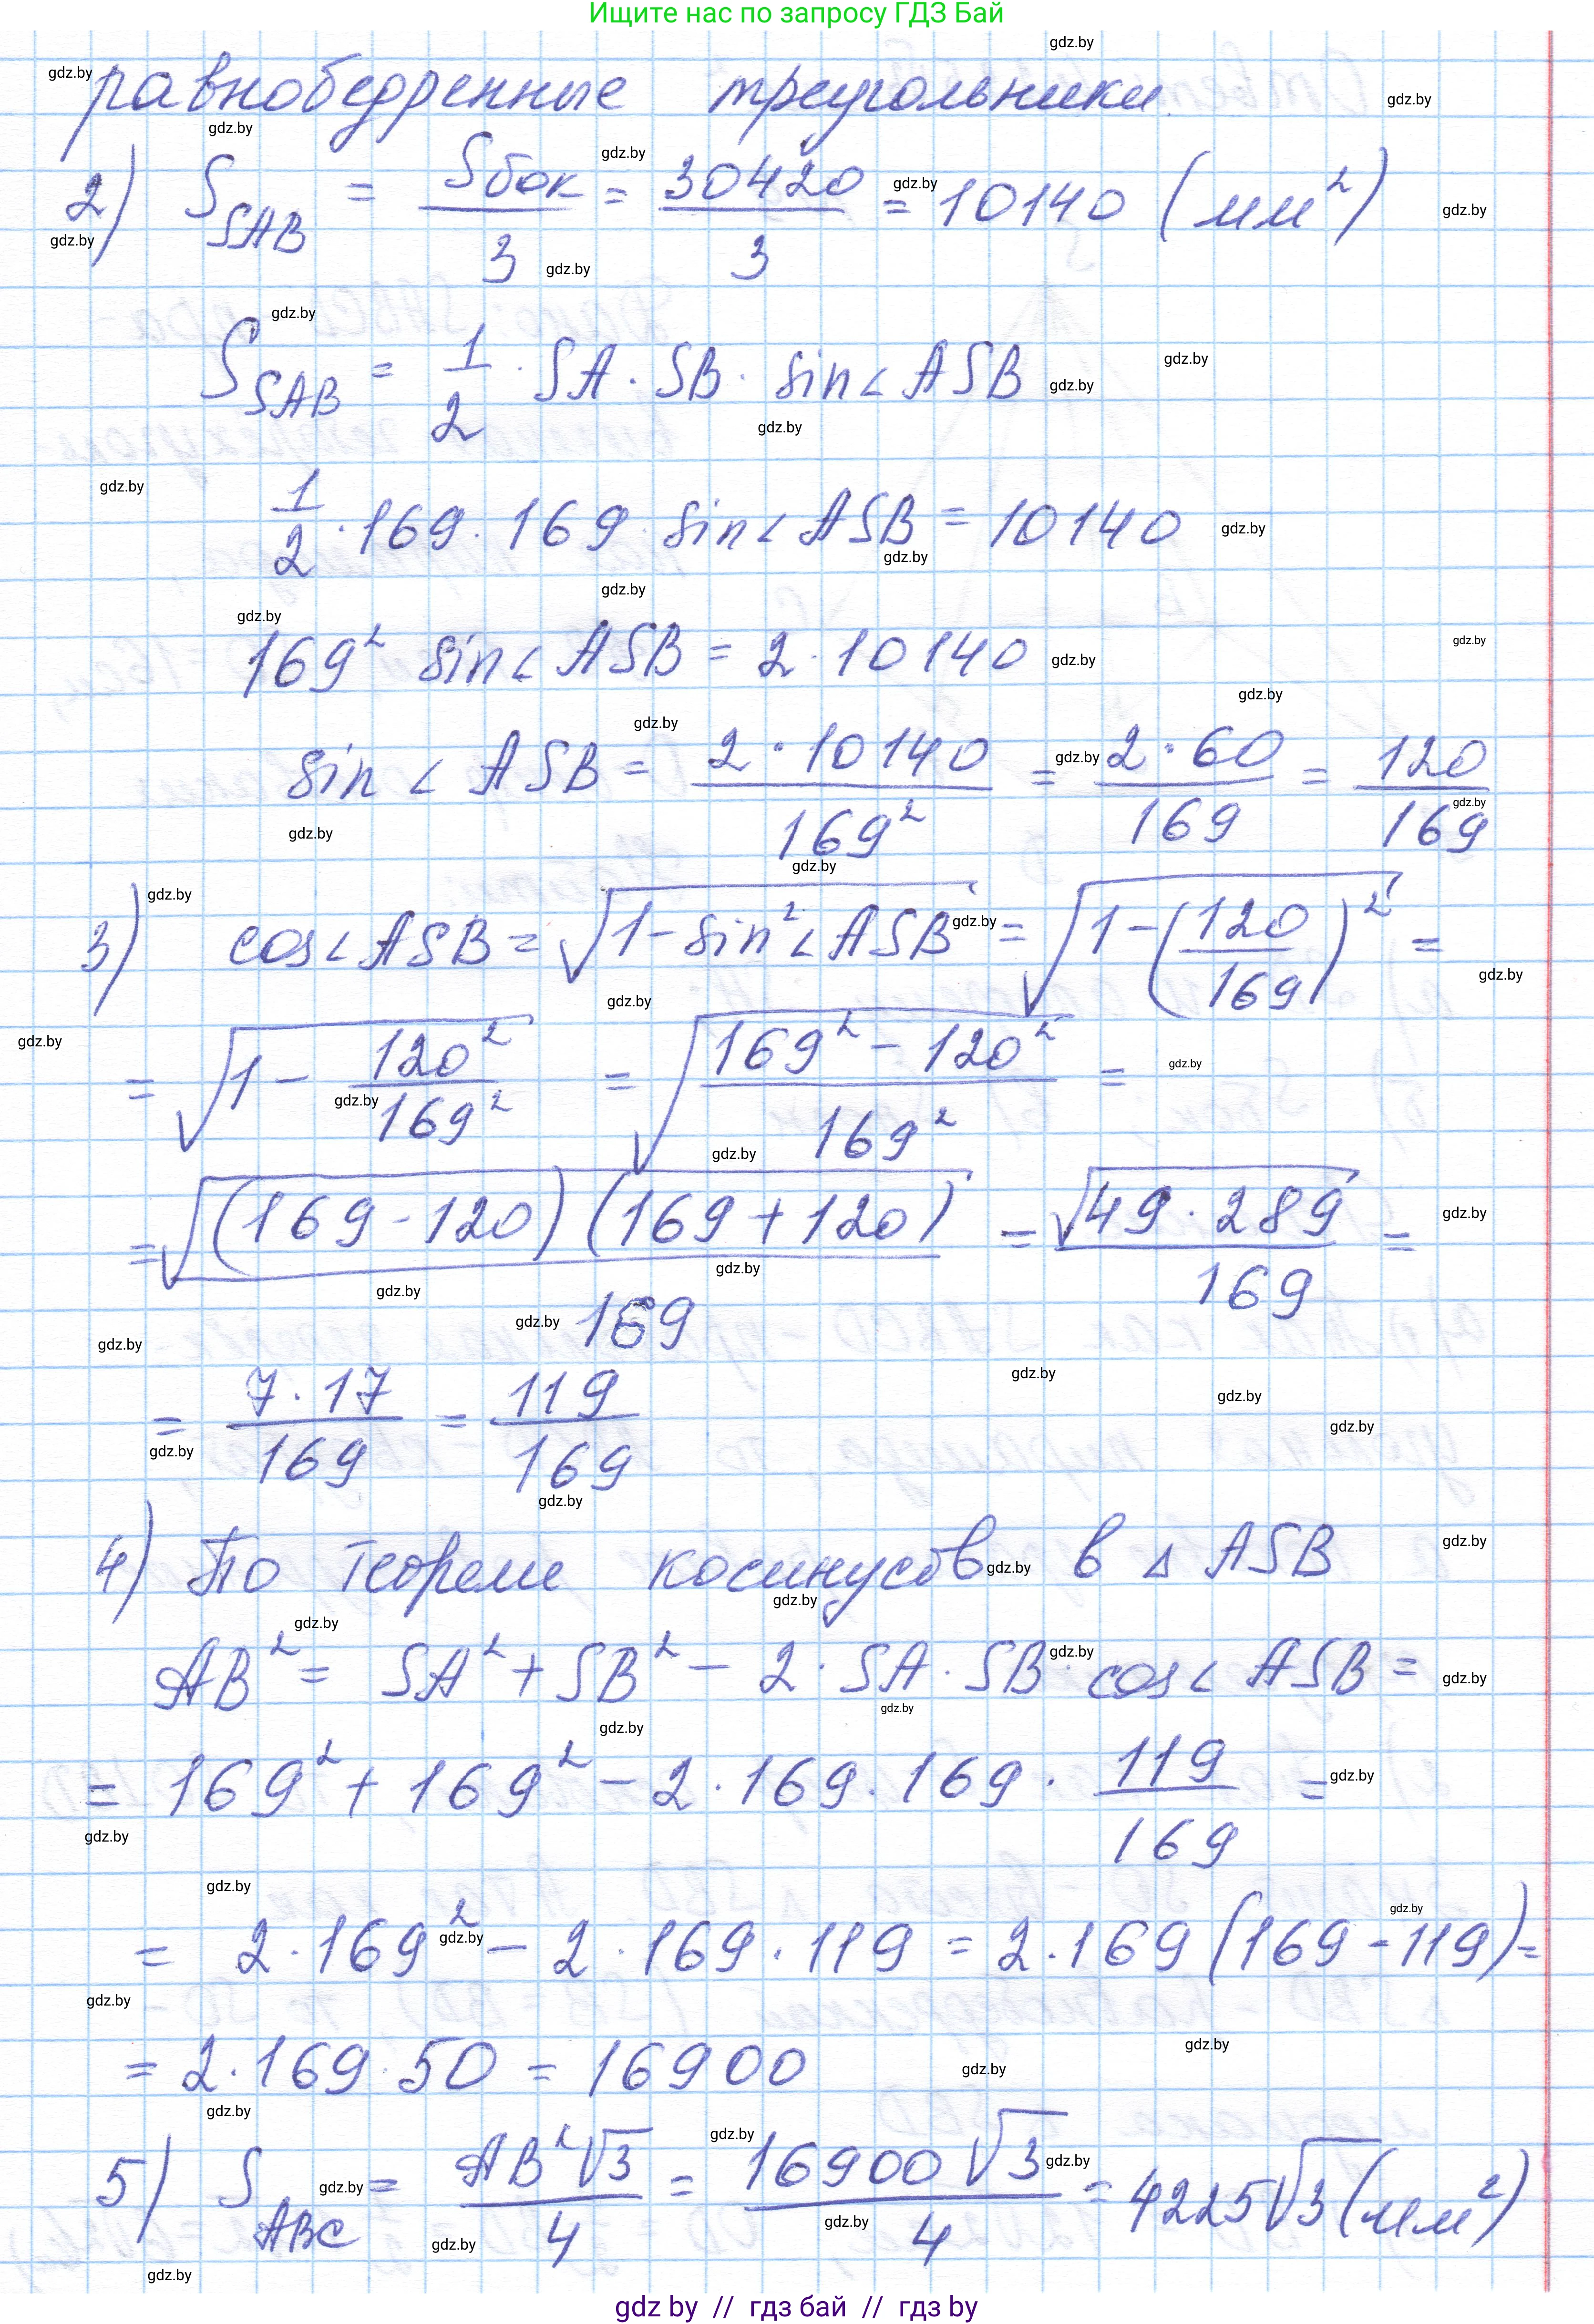 Ищите нас по запросу ГДЗ Бай
равнобедренные треугольники
2) S_SAB = Sбок/3 = 30420/3 = 10140 (мм²)
S_SAB = 1/2 · SA · SB · sin∠ASB
1/2 · 169 · 169 · sin∠ASB = 10140
169² sin∠ASB = 2 · 10140
sin∠ASB = 2 · 10140/169² = 2 · 60/169 = 120/169
3) cos∠ASB = √(1 - sin²∠ASB) = √(1 - (120/169)²) =
= √(1 - 120²/169²) = √((169² - 120²)/169²) =
= √((169 - 120)(169 + 120))/169 = √(49 · 289)/169 =
= 7 · 17/169 = 119/169
4) По теореме косинусов в △ASB
AB² = SA² + SB² - 2 · SA · SB · cos∠ASB =
= 169² + 169² - 2 · 169 · 169 · 119/169 =
= 2 · 169² - 2 · 169 · 119 = 2 · 169 (169 - 119) =
= 2 · 169 · 50 = 16900
5) S_ABC = AB²√3/4 = 16900√3/4 = 4225√3 (мм²)
gdz by // гдз бай // гдз by